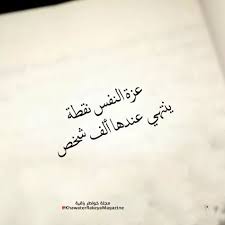 عزة النفس نقطة
ينتهي عندها ألف شخص
مجلة خواطر راقية
KhawaterRakeyaMagazine